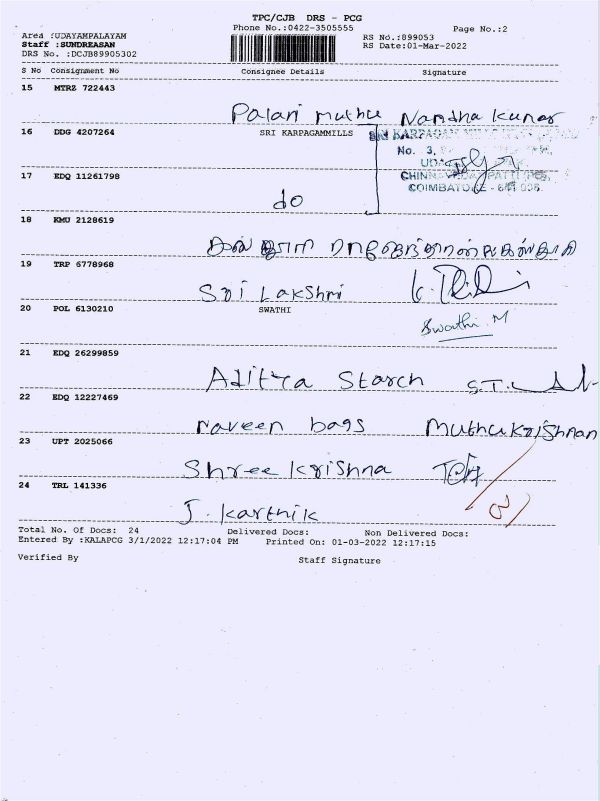 TPC/CJB DRS - PCG
Phone No.:0422-3505555
Page No.:2
Area :UDAYAMPALAYAM
RS No.:899053
Staff :SUNDREASAN
RS Date:01-Mar-2022
DRS No. :DCJB89905302
S No Consignment No Consignee Details Signature
15 MTRZ 722443
Palani muthu Nandha kumar
16 DDG 4207264 SRI KARPAGAMMILLS
SRI KARPAGAM MILLS
No. 3,
17 EDQ 11261798
COIMBATORE
do
18 KMU 2128619
19 TRP 6778968
Sri Lakshmi
20 POL 6130210 SWATHI
Swathi M
21 EDQ 26299859
Aditya Starch S.T.
22 EDQ 12227469
Naveen bags Muthukrishnan
23 UPT 2025066
Shree krishna
24 TRL 141336
J. karthik
Total No. Of Docs: 24 Delivered Docs: Non Delivered Docs:
Entered By :KALAPCG 3/1/2022 12:17:04 PM Printed On: 01-03-2022 12:17:15
Verified By Staff Signature